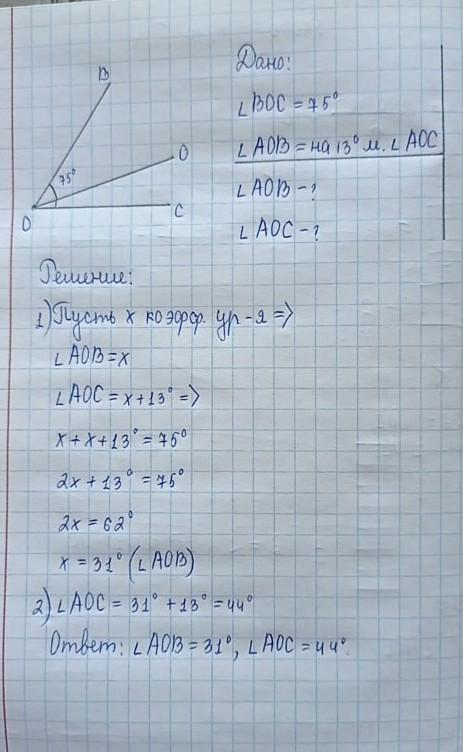 B
75°
O
C
O
Дано:
∠BOC = 75°
∠AOB = на 13° м. ∠AOC
∠AOB - ?
∠AOC - ?
Решение:
1) Пусть x коэфф. ур-я =>
∠AOB = x
∠AOC = x + 13° =>
x + x + 13° = 75°
2x + 13° = 75°
2x = 62°
x = 31° (∠AOB)
2) ∠AOC = 31° + 13° = 44°
Ответ: ∠AOB = 31°, ∠AOC = 44°.